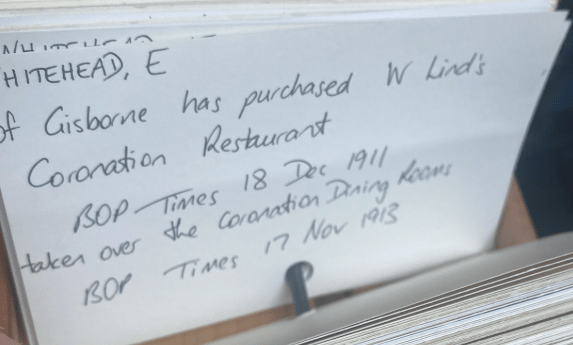 HITEHEAD, E
of Gisborne has purchased W Lind's
Coronation Restaurant
BOP Times 18 Dec 1911
taken over the Coronation Dining Rooms
BOP Times 17 Nov 1913